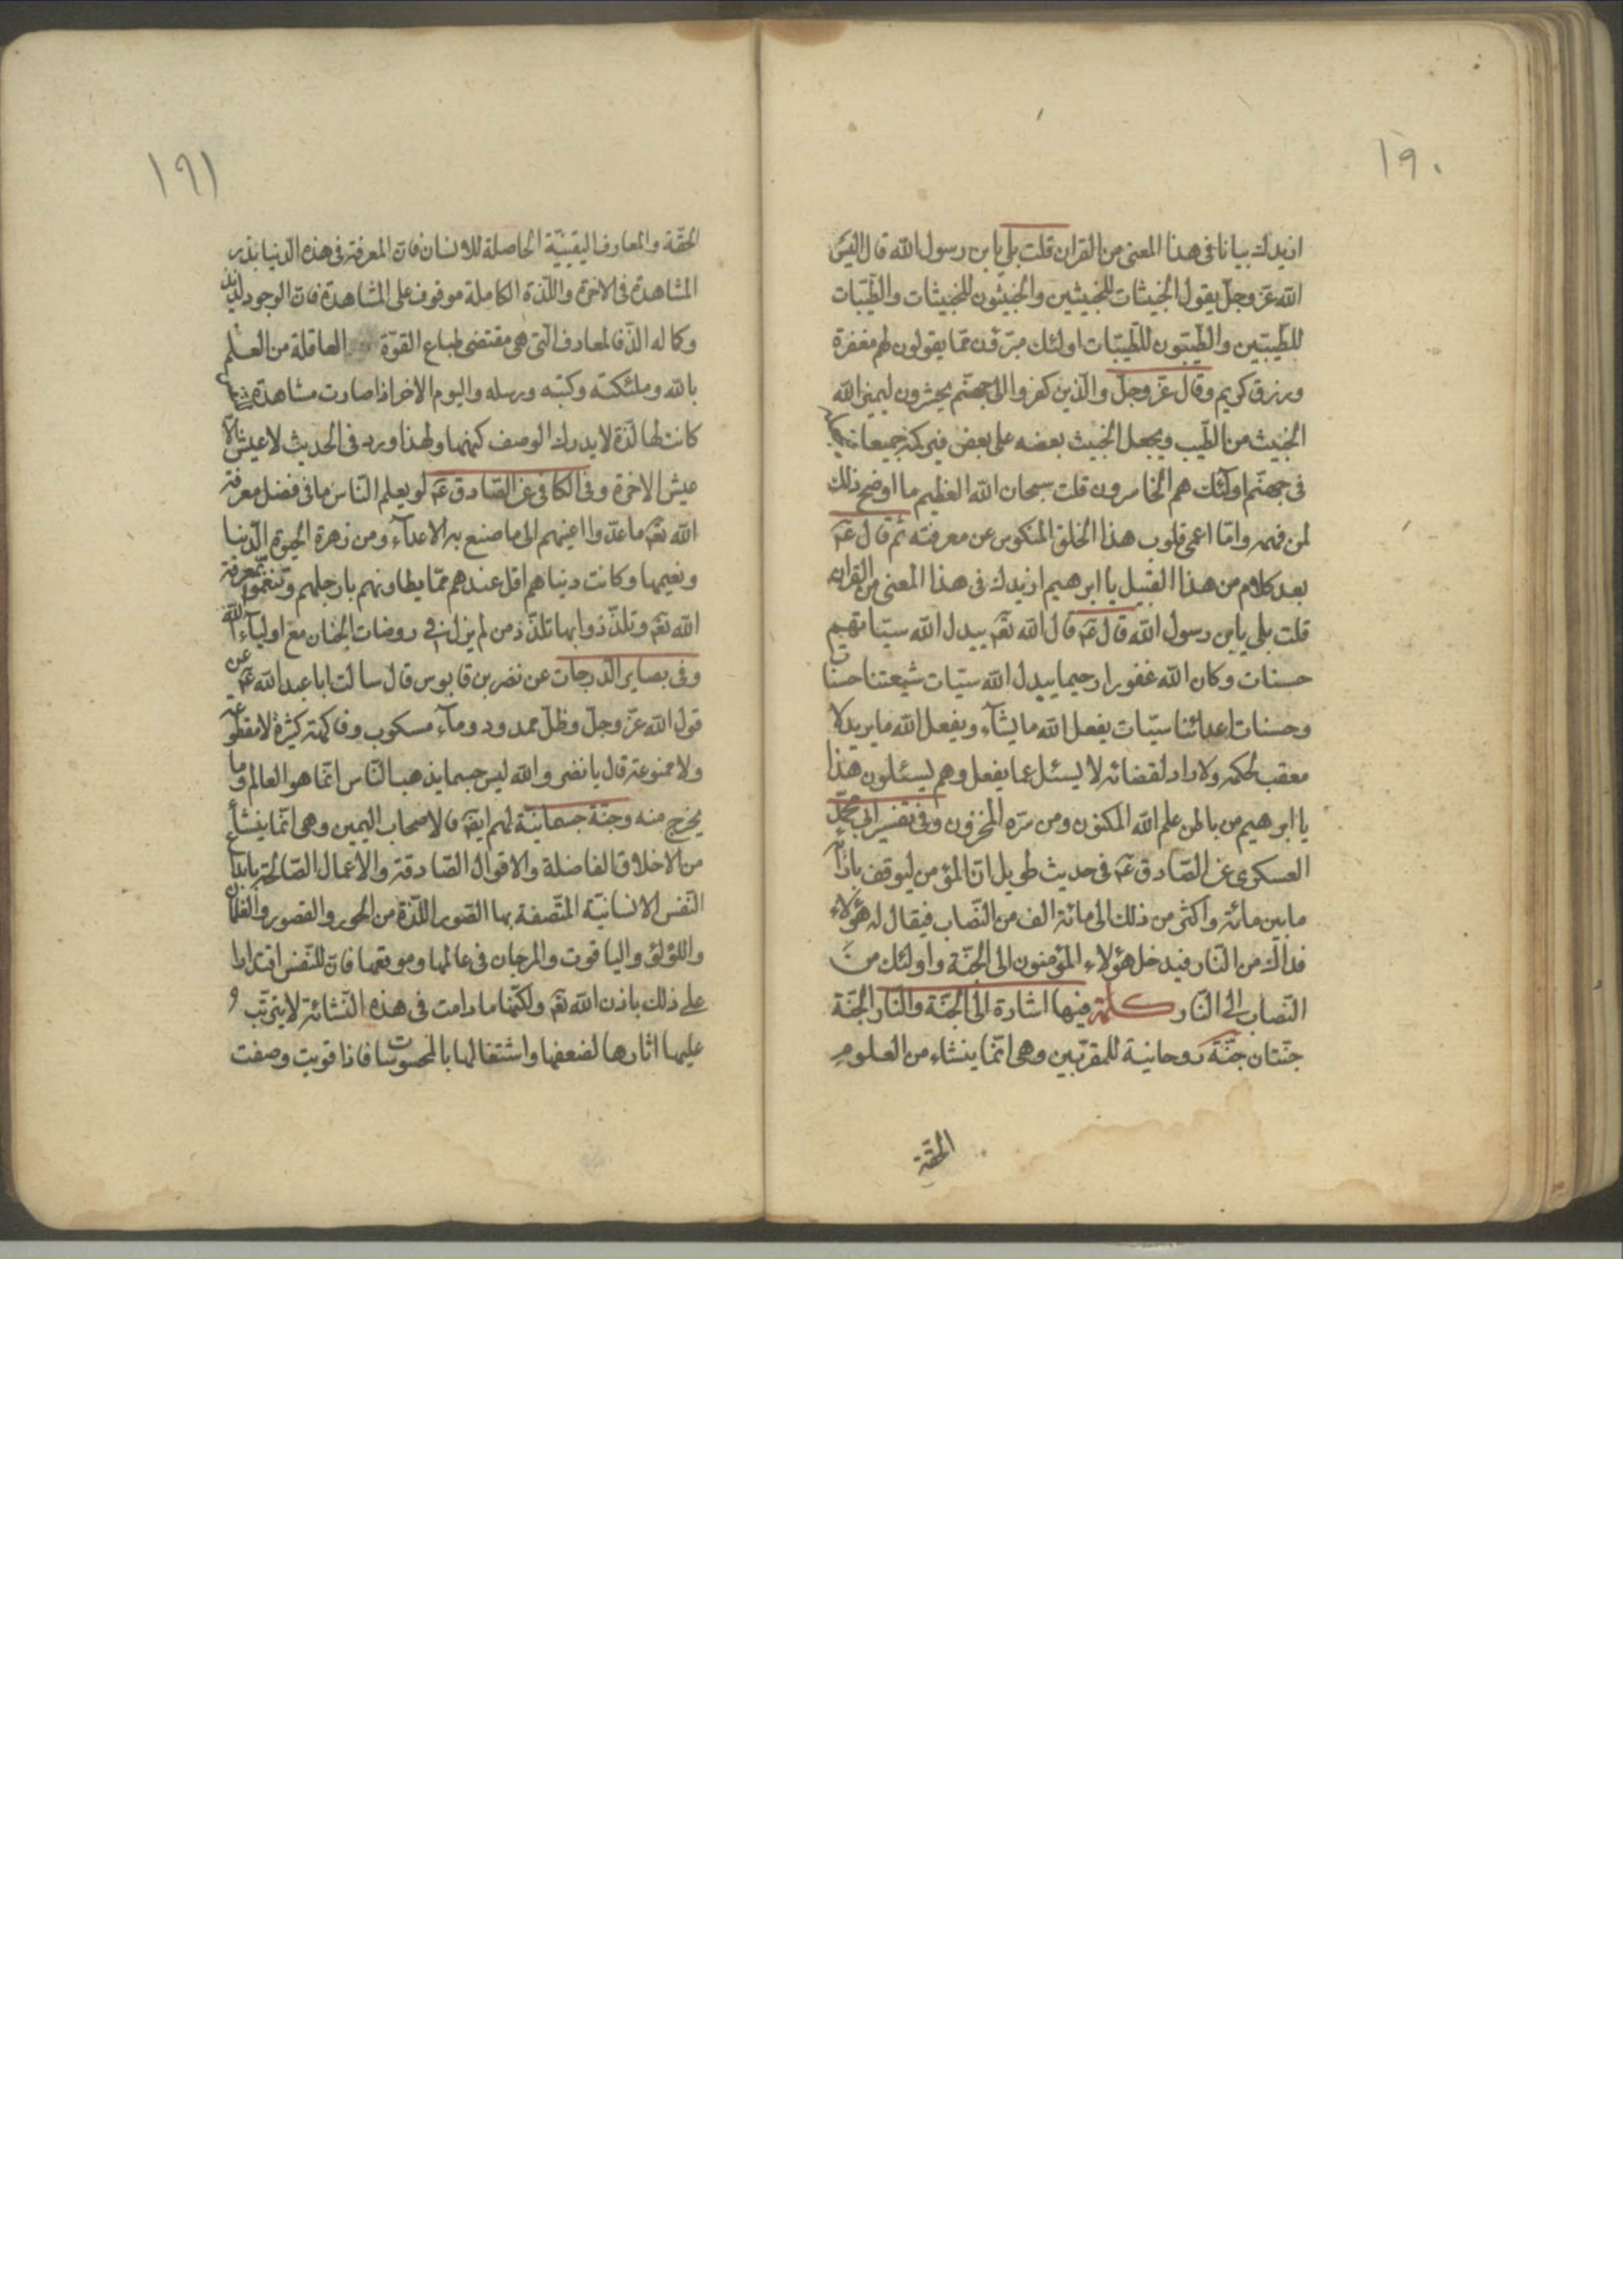 ١٩٠
ازيدك بيانا فى هذا المعنى من القران قلت بلى يابن رسول الله قال اليس
الله عزّ وجلّ يقول الخبيثات للخبيثين والخبيثون للخبيثات والطّيّبات
للطّيّبين والطّيّبون للطّيّبات اولئك مبرّؤن ممّا يقولون لهم مغفرة
ورزق كريم وقال عزّ وجلّ والّذين كفروا الى جهنّم يحشرون ليميز الله
الخبيث من الطّيب ويجعل الخبيث بعضه على بعض فيركمه جميعا فيجعله
فى جهنّم اولئك هم الخاسرون قلت سبحان الله العظيم ما اوضح ذلك
لمن فهمه وامّا اعمى قلوب هذا الخلق المنكوس عن معرفته ثم قال ع
بعد كلام من هذا القبيل يا ابرهيم ازيدك فى هذا المعنى من القران
قلت بلى يابن رسول الله قال ع قال الله تع يبدل الله سيّاتهم
حسنات وكان الله غفورا رحيما يبدل الله سيّات شيعتنا حسنات
وحسنات اعدائنا سيّات يفعل الله ما يشآء ويفعل الله ما يريد لا
معقب لحكمه ولا راد لقضائه لا يسئل عما يفعل وهم يسئلون هذا
يا ابرهيم من باطن علم الله المكنون ومن سرّه المخزون وفى تفسير ابى محمّد
العسكرى عن الصّادق ع فى حديث طويل انّ المؤمن ليوقف بازآئه
ما بين مائة واكثر من ذلك الى مائة الف من النّصاب فيقال له هؤلاء
فداك من النّار فيدخل هؤلاء المؤمنون الى الجنّة واولئك من
النّصاب الى النّار كلمة فيها اشارة الى الجنّة والنّار الجنّة
جنّتان جنّة روحانية للمقرّبين وهى انّما ينشاء من العلوم
الحقّة
١٩١
الحقّة والمعارف اليقينيّة الحاصلة للانسان فانّ المعرفة فى هذه الدّنيا بذر
المشاهدة فى الاخرة واللّذة الكاملة موقوفة على المشاهدة فانّ الوجود لذيذ
وكماله الذّ فالمعارف الّتى هى مقتضى طباع القوّة العاقلة من العلم
بالله وملئكته وكتبه ورسله واليوم الاخر اذا صارت مشاهدة
كانت لها لذّة لا يدرك الوصف كنهها ولهذا ورد فى الحديث لا عيش الّا
عيش الاخرة وفى الكافى عن الصّادق ع لو يعلم النّاس ما فى فضل معرفة
الله تع ما مدّوا اعينهم الى ما صنع به الاعدآء ومن زهرة الحيوة الدّنيا
ونعيمها وكانت دنياهم اقل عندهم ممّا يطاونهم بارجلهم وتنعّموا بمعرفة
الله تع وتلذّذوا بها تلذّذ من لم يزل فى روضات الجنان مع اوليآء الله
وفى بصاير الدّرجات عن نضر بن قابوس قال سالت ابا عبد الله ع عن
قول الله عزّ وجلّ وظلّ ممدود ومآء مسكوب وفاكهة كثيرة لا مقطوعة
ولا ممنوعة قال يا نضر والله ليس حيما يذهب النّاس انّما هو العالم وما
يخرج منه وجنّة جسمانيّة لهم ايض ولاصحاب اليمين وهى انّما ينشأ
من الاخلاق الفاضلة والاقوال الصّادقة والاعمال الصّالحة بابداع
النّفس الانسانيّة المتّصفة بها الصّور اللّذة من الحور والقصور والغلمان
واللؤلؤ والياقوت والمرجان فى عالمها وموقعها فانّ للنّفس اقتدارا
على ذلك باذن الله تع ولكنّها ما دامت فى هذه النّشائة لا يترتّب
عليها اثارها لضعفها واشتغالها بالمحسوسات فاذا قويت وصفت